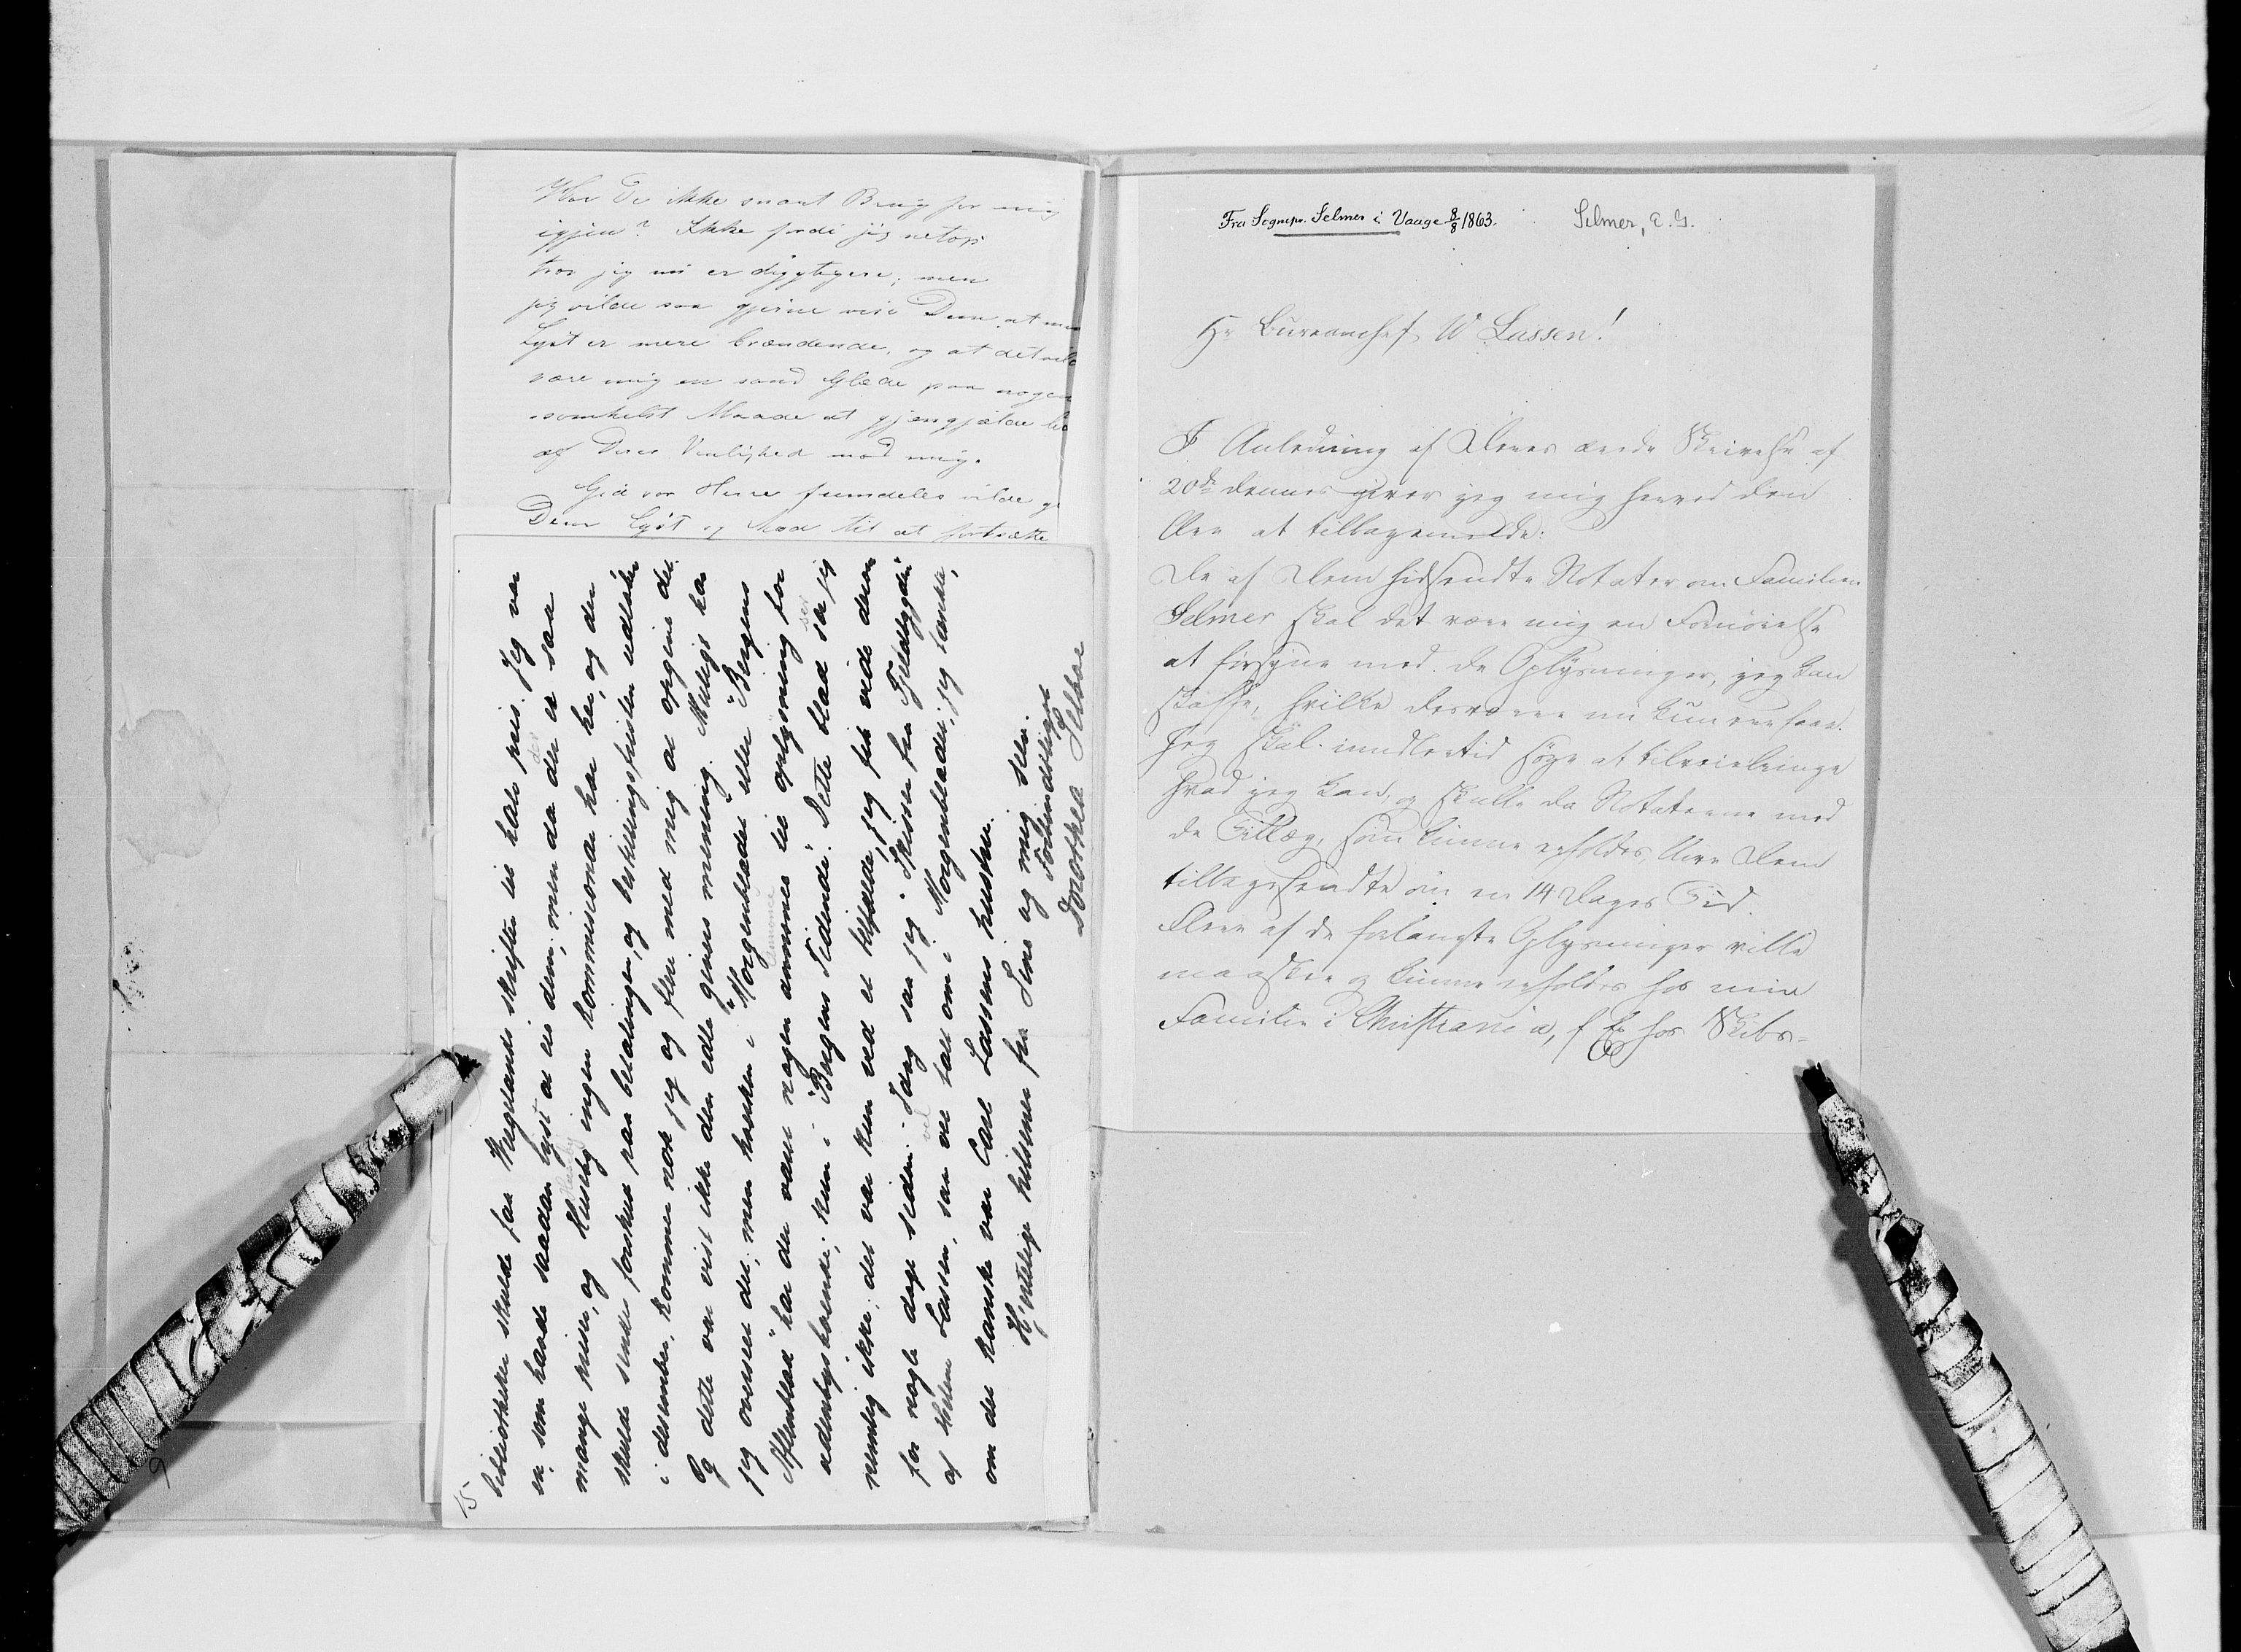 Har De ikke snart Brug for mig
igjen? Ikke fordi jeg netop
tror jeg nu er dygtigere; men
jeg vilde saa gjerne vise Dem, at min
Lyst er mere brændende, og at det vilde
være mig en sand Glæde paa nogen
somhelst Maade at gjengjælde
af Deres Venlighed mod mig.
Gid vor Herre fremdeles vilde
Dem Lyst og Mod til at fortsætte
bibliotheket skulde faa Wegelands skrifter til halv pris. Jeg var
en, som havde saadan lyst at eie dem; men da der er saa
der
mange priser, og Huseby ingen kommissionær har her, og der
Huseby
skulde sendes forskud paa betalingen, og bestillingsfristen udløber
i desember, kommer nok jeg og flere med mig at opgive det.
Og dette var vist ikke den ædle givers mening. Muligt har
jeg overseet det; men hverken i "Morgenbladet" eller "Bergens
Aftenblad" har der været nogen annonse til oplysning for
annonce
udenbysboende; kun i "Bergens Tidende". Dette blad ser jeg
ser
nemlig ikke; det var kun ved et tilfælde, jeg fik vide derom
for nogle dage siden. Idag saa jeg "Skisser fra Fjeldbygden"
af Helene Lassen, saa vel talt om i "Morgenbladet"; jeg tænkte,
vel
om det kanske var Carl Lassens hustru.
Hjertelige hilsener fra Lina og mig selv.
Forbindtligst
Dorothea Selboe
15
9
Fra Sognepr. Selmer i Vaage 8/8 1863.
Selmer, E. G.
Hr Bureauchef W Lassen!
I Anledning af Deres ærede Skrivelse af
20de dennes giver jeg mig herved den
Ære at tilbagemelde:
De af Dem hidsendte Notater om Familien
Selmer skal det være mig en Fornøielse
at forsyne med de Oplysninger, jeg kan
skaffe, hvilke desværre nu kun ere faae.
Jeg skal imidlertid søge at tilveiebringe
hvad jeg kan, og skulle da Notaterne med
de Tillæg, som kunne erholdes, blive Dem
tilbagesendte om en 14 Dages Tid.
Flere af de forlangte Oplysninger ville
maaskee og kunne erholdes hos min
Familie i Christiania, f Ex hos Skibs-